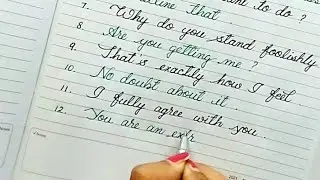 that
to do ?
7. Why do you stand foolishly
8. Are you getting me ?
9. That's exactly how I feel
10. No doubt about it
11. I fully agree with you
12. You are an extr